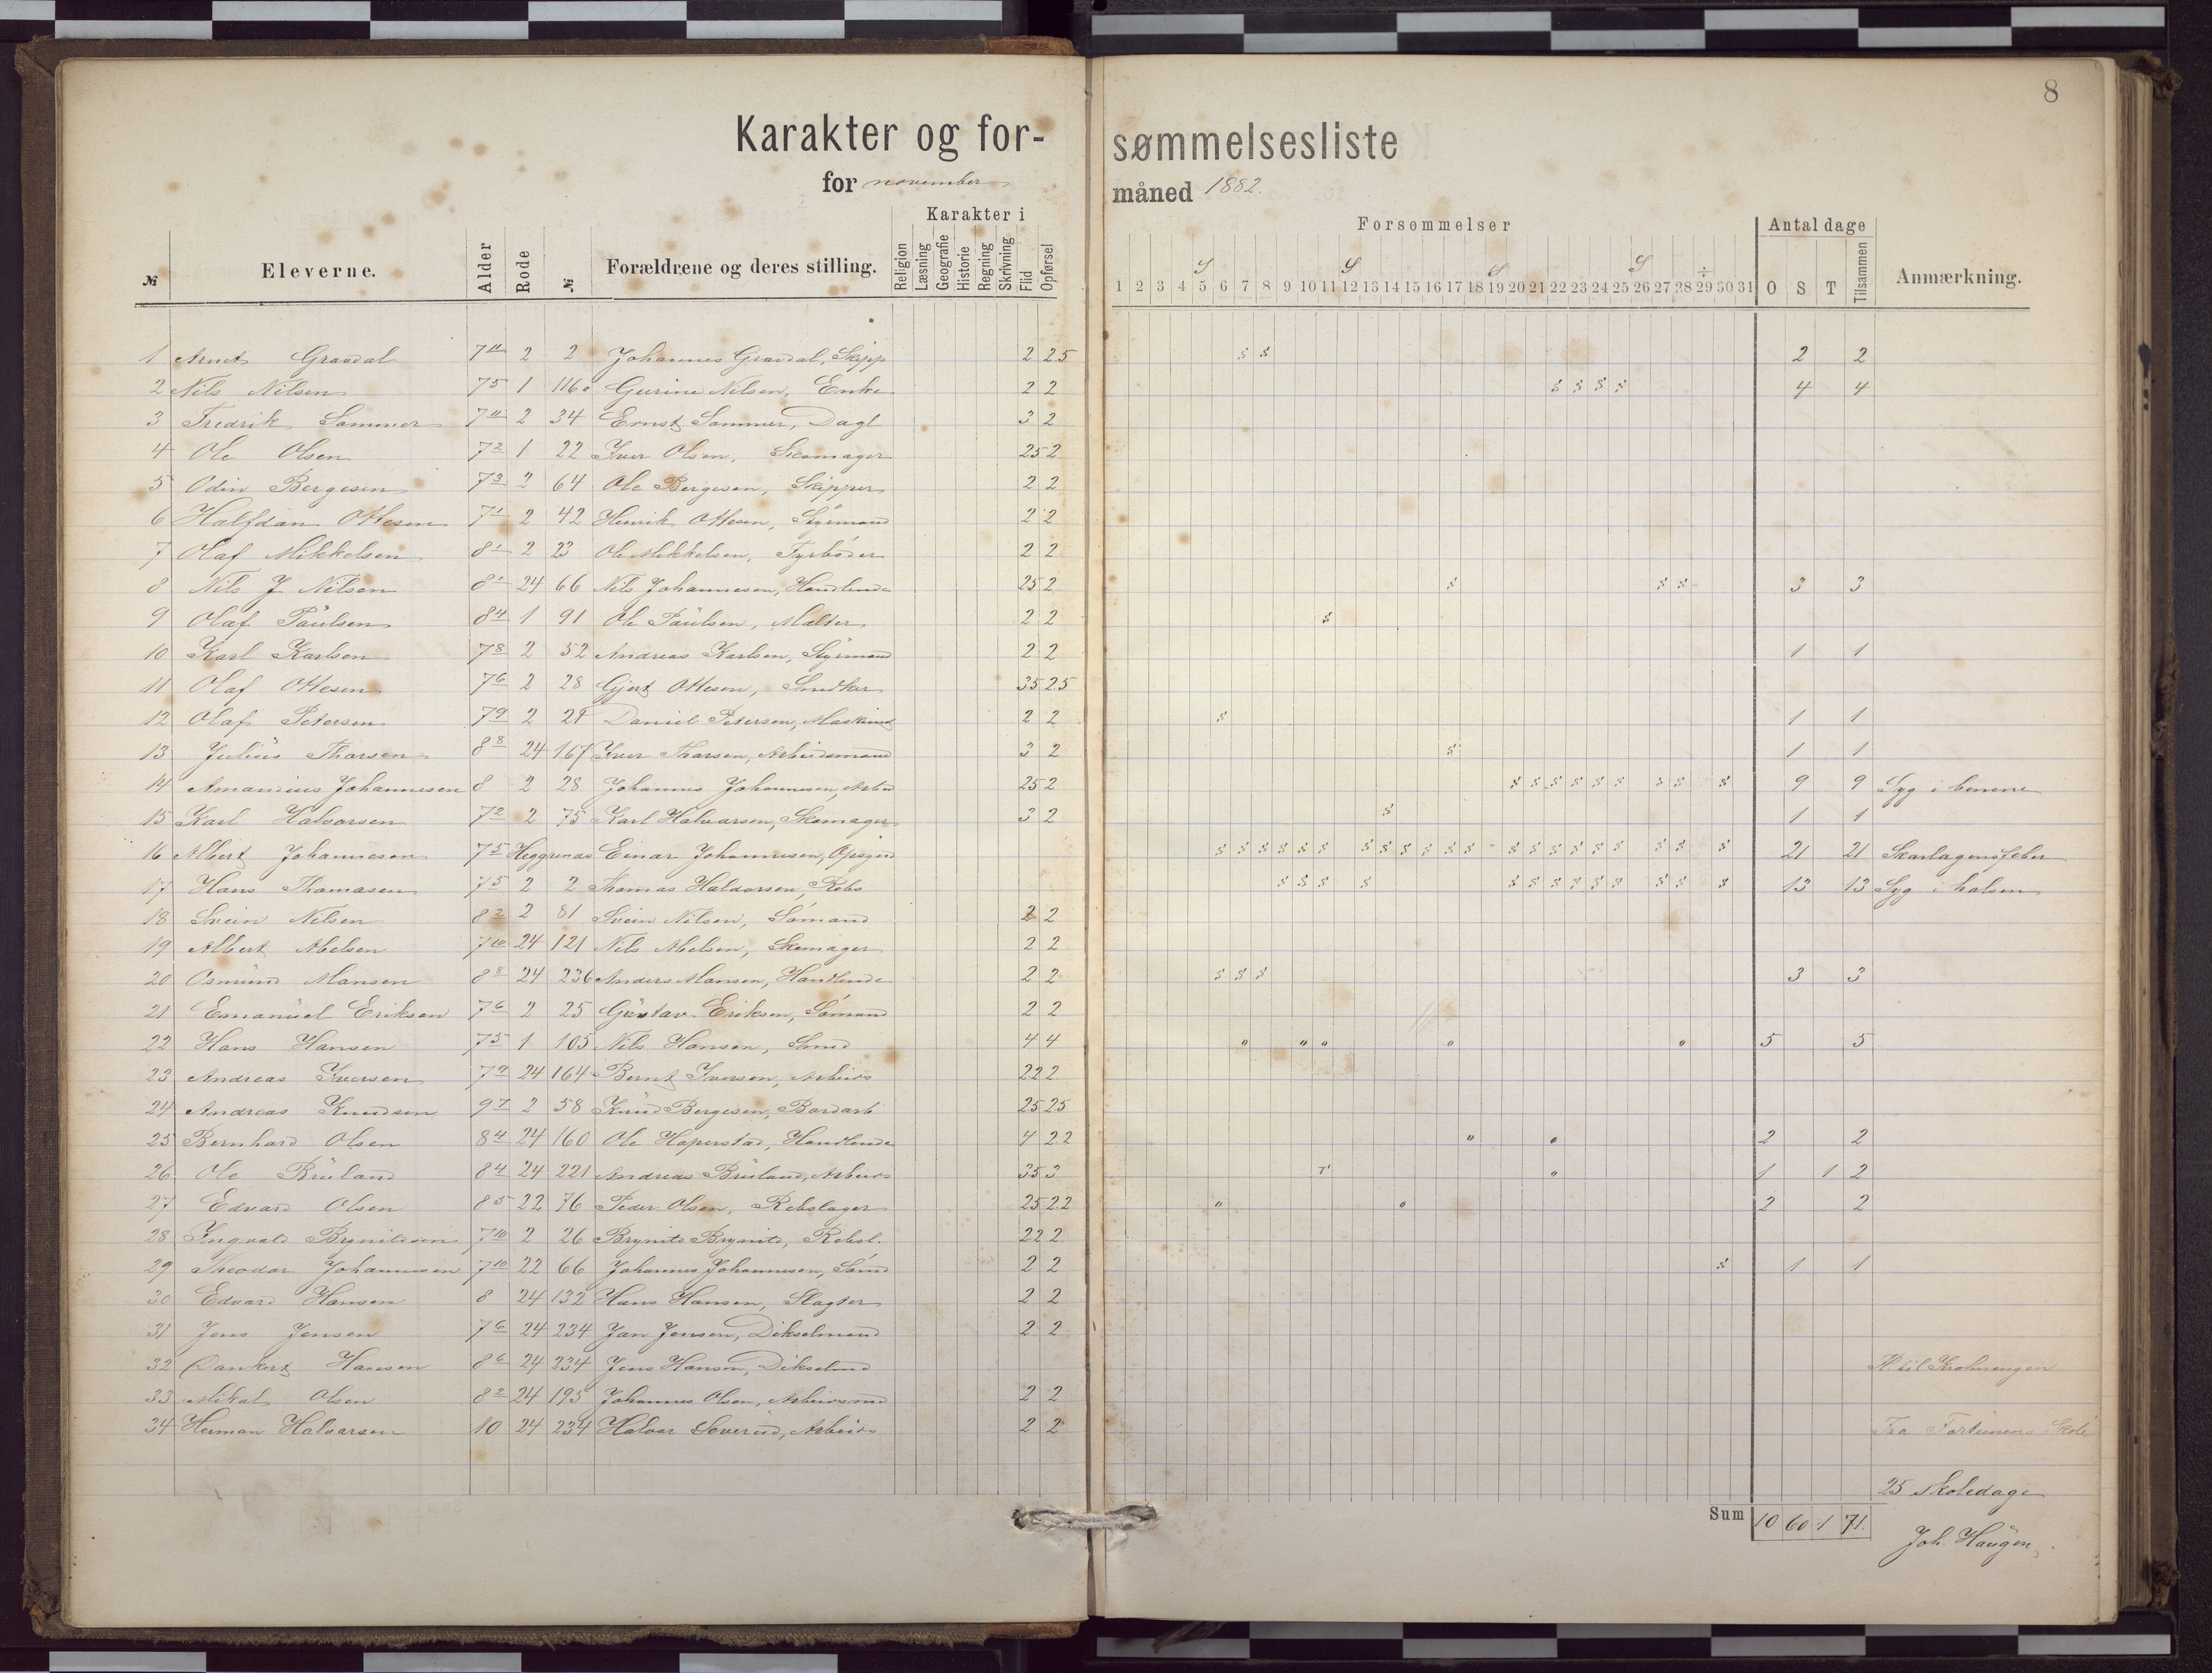 8
Karakter og for-sømmelsesliste
for november måned 1882.
Karakter i
Forsommelser
Antal dage
№ Eleverne. Alder Rode № Forældrene og deres stilling. Religion Læsning Geografie Historie Regning Skrivning Flid Opførsel
S S S S ÷
1 2 3 4 5 6 7 8 9 10 11 12 13 14 15 16 17 18 19 20 21 22 23 24 25 26 27 28 29 30 31 O S T Tilsammen Anmærkning.
1 Gravdal 7 11 2 2 Johannes Gravdal, Skipp 2 2.5 s s 2 2
2 Nils Nilsen 7 5 1 116 Gurine Nilsen, Enke 2 2 s s s s 4 4
3 Fredrik Sommer 7 11 2 34 Ernst Sommer, Dagl 3 2
4 Ole Olsen 7 2 1 22 Iver Olsen, Skomager 25 2
5 Odin Bergesen 7 3 2 64 Ole Bergesen, Skipper 2 2
6 Halfdan Ottesen 7 1 2 42 Henrik Ottesen, Styrmand 2 2
7 Olaf Mikkelsen 8 1 2 23 Ole Mikkelsen, Fyrbøder 2 2
8 Nils J Nilsen 8 1 24 66 Nils Johannesen, Handlende 25 2 s s s 3 3
9 Olaf Paulsen 8 4 1 91 Ole Paulsen, 2 2 s
10 Karl Karlsen 7 8 2 52 Andreas Karlsen, Styrmand 2 2 1 1
11 Olaf Ottesen 7 6 2 28 Gjert Ottesen, 35 2.5
12 Olaf Petersen 7 9 2 Daniel Petersen, Maskinist 2 2 s 1 1
13 Julius Thorsen 8 8 24 167 Iver Thorsen, Arbeidsmand 3 2 s 1 1
14 Amandius Johannesen 8 2 28 Johannes Johannesen, Arbei 25 2 s s s s s s s s s 9 9 Syg i benene
15 Karl Halvorsen 7 2 2 75 Karl Halvorsen, Skomager 3 2 s 1 1
16 Albert Johannesen 7 5 Heggrenæs Einar Johannesen, Opsynd s s s s s s s s s s s s s s s s s s s s s 21 21 Skarlagensfeber
17 Hans Thomasen 7 5 2 2 Thomas Haldorsen, Rebs s s s s s s s s s s s s s 13 13 Syg i halsen
18 Svein Nilsen 8 2 2 81 Svein Nilsen, Sømand 2 2
19 Albert Abelsen 7 10 24 121 Nils Abelsen, Skomager 2 2
20 Osmund Monsen 8 8 24 236 Anders Monsen, Handlende 2 2 s s s 3 3
21 Emanuel Eriksen 7 6 2 25 Gustav Eriksen, Sømand 2 2
22 Hans Hansen 7 5 1 105 Nils Hansen, Smed 4 4 o o o o o 5 5
23 Andreas Iversen 7 9 24 164 Bernt Iversen, Arbeids 22 2
24 Andreas Knudsen 9 7 2 58 Knud Bergesen, Bordarb 25 25
25 Bernhard Olsen 8 4 24 160 Ole Haperstad, Handlende 4 2 2 o o 2 2
26 Ole Bruland 8 4 24 221 Andreas Bruland, Arbeids 35 3 T o 1 1 2
27 Edvard Olsen 8 5 22 76 Peder Olsen, Rebslager 25 22 o o 2 2
28 Ingvald Brynildsen 7 10 2 26 Brynild Brynild, Rebsl. 22 2
29 Theodor Johannesen 7 10 22 66 Johannes Johannesen, Sømd 2 2 s 1 1
30 Edvard Hansen 8 24 132 Hans Hansen, Slagter 2 2
31 Jens Jensen 7 6 24 234 Jan Jensen, Dikselmand 2 2
32 Dankert Hansen 8 6 24 234 Jens Hansen, Dikselmd Fl til Krohnengen
33 Mikal Olsen 8 2 24 195 Johannes Olsen, Arbeidsmd 2 2
34 Herman Halvorsen 10 24 234 Halvor Soverud, Arbeids 2 2 Fra Fortunens Skole
25 Skoledage
Sum 10 60 1 71.
Joh. Haugen.